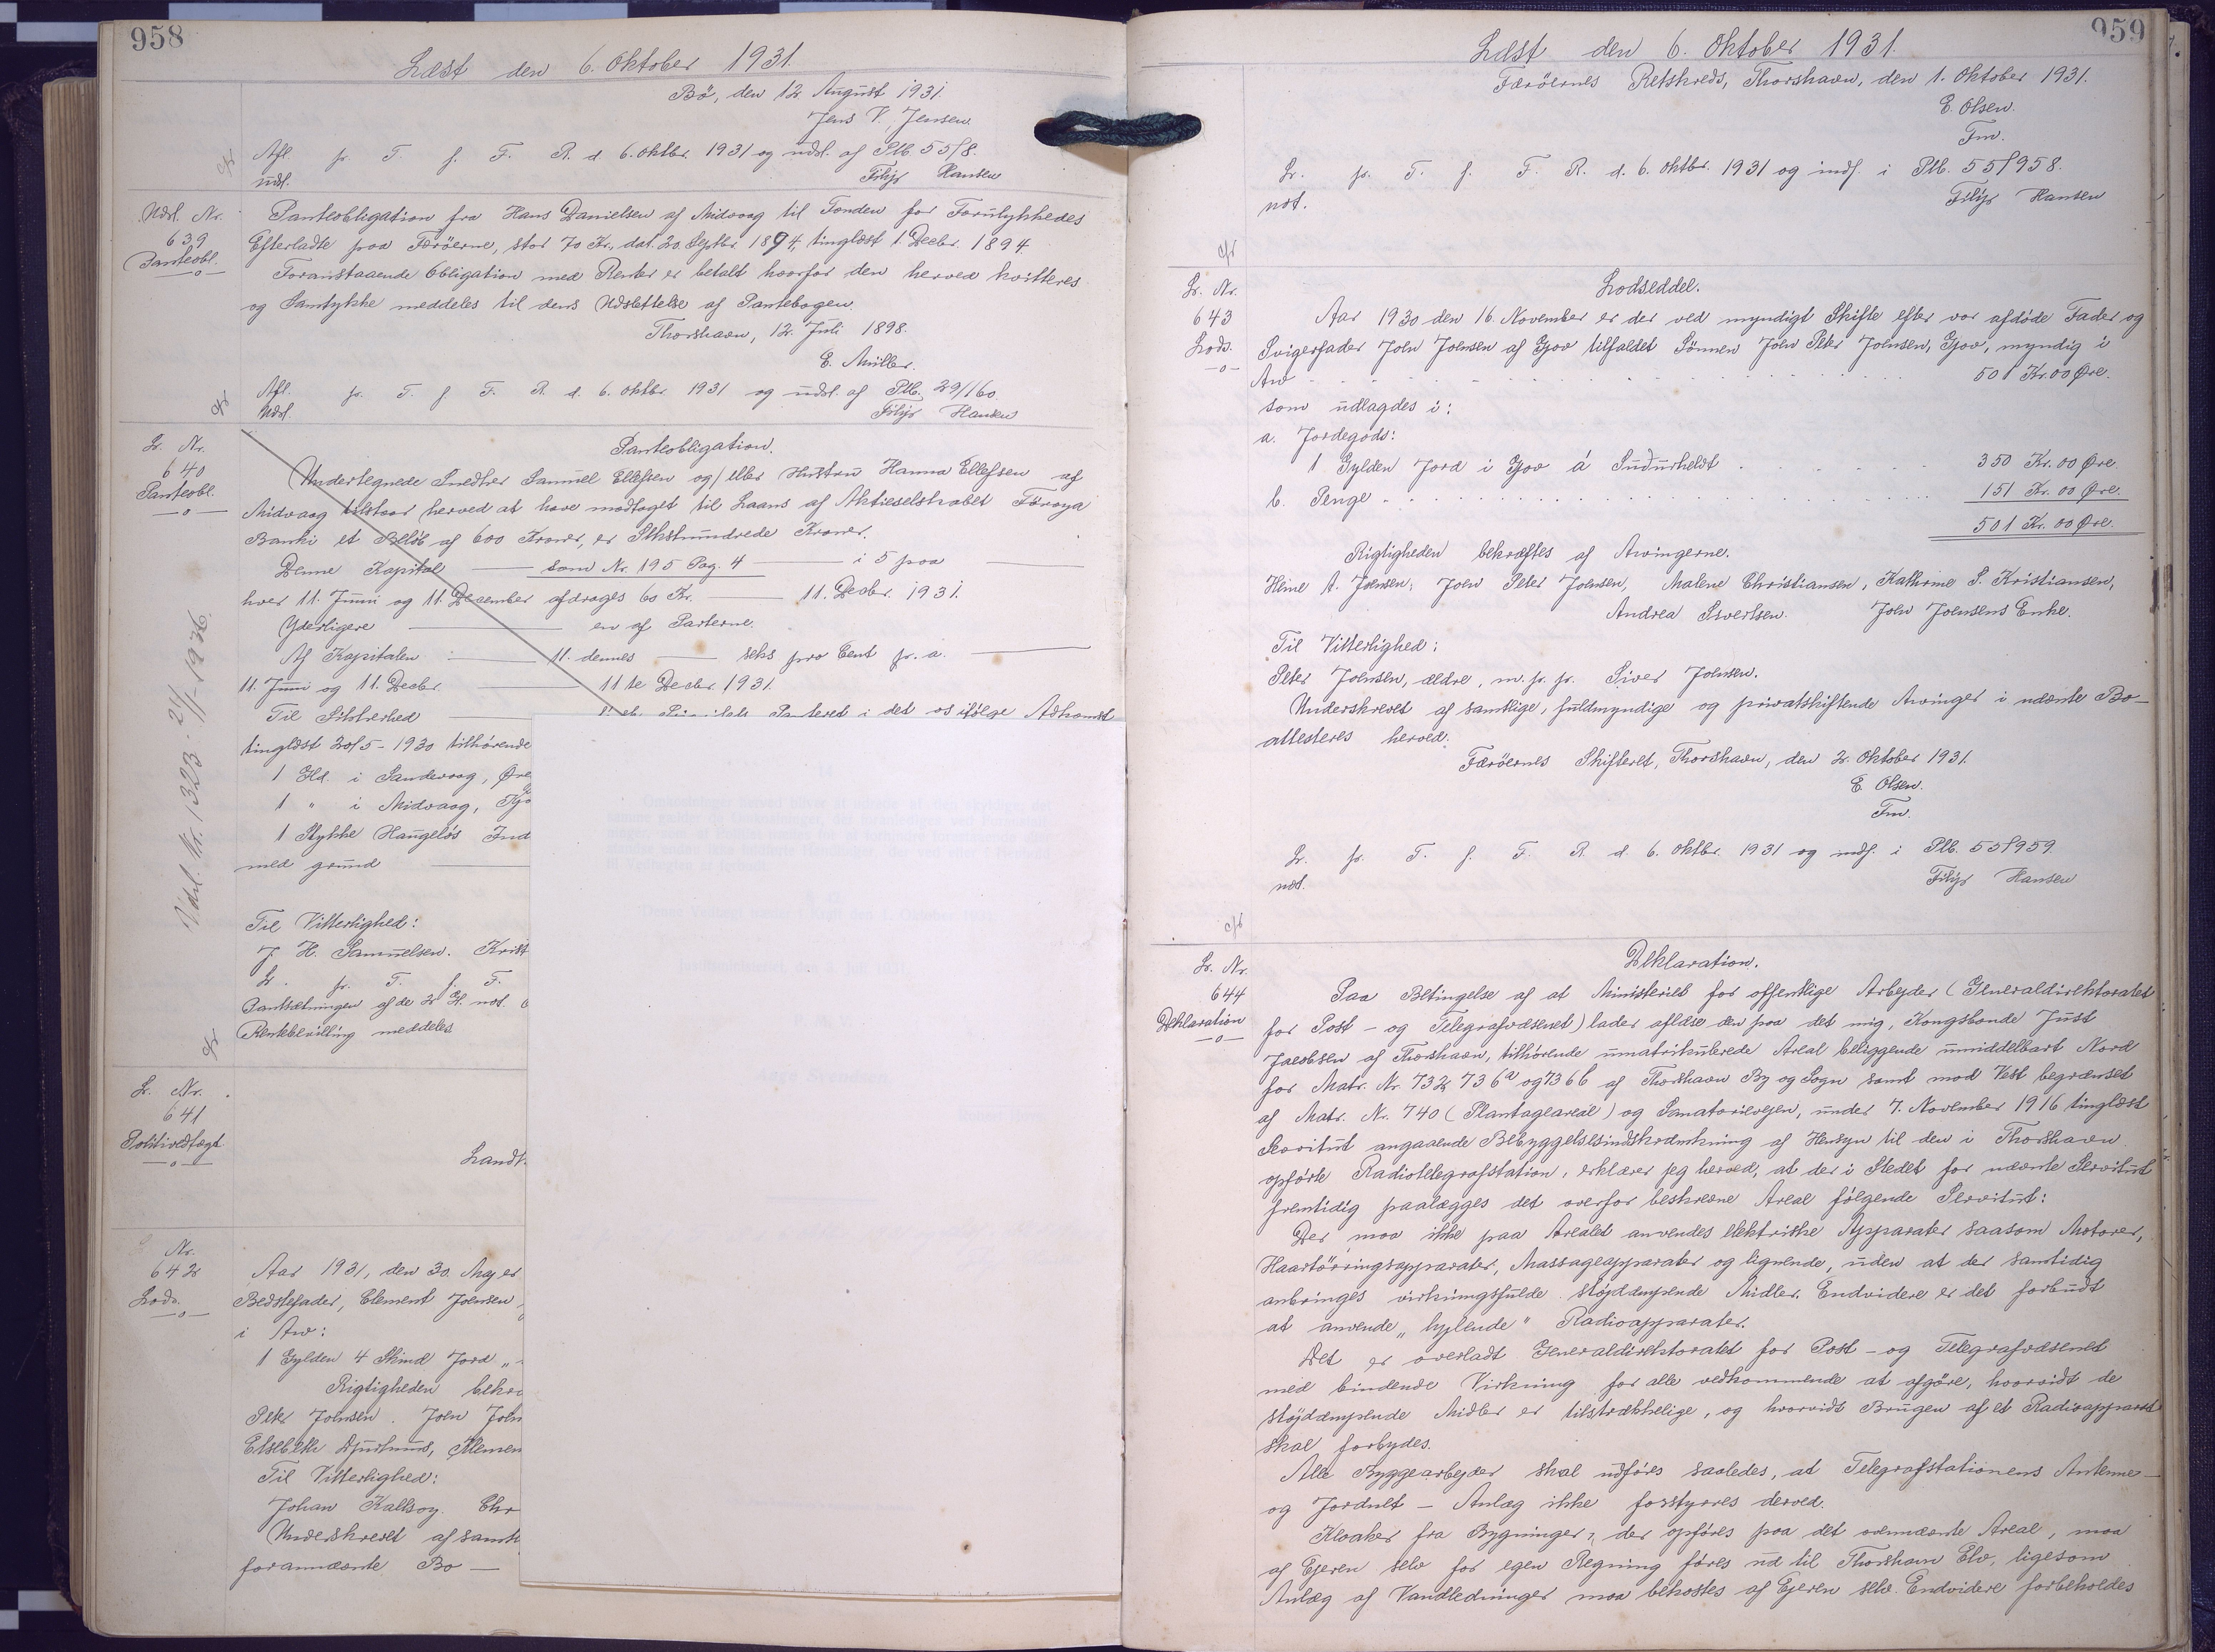 958
Læst den 6. Oktober 1931.
Bö, den 12 August 1931.
Jens V. Jensen
Afl. p. T. f. F. R. d. 6. Oktbr. 1931 og udsl. af Ptb. 55/8.
udsl. Filip Hansen
Udsl. Nr.
639
Panteobl.
Panteobligation fra Hans Danielsen af Midvaag til Fonden for Forulykkedes
Efterladte paa Færöerne, stor 70 Kr., dat. 20. Septbr. 1894, tinglæst 1. Decbr. 1894.
Foranstaaende Obligation med Renter er betalt hvorfor den herved kvitteres
og Samtykke meddeles til dens Udslettelse af Pantebogen.
Thorshavn, 12. Juli 1898.
E. Müller.
Afl. p. T. f. F. R. d. 6. Oktbr. 1931 og udsl. af Ptb. 29/160
Udsl. Filip Hansen
Lr. Nr.
640
Panteobl.
Panteobligation.
Undertegnede Snedker Samuel Ellefsen og/eller Hustru Hanna Ellefsen af
Midvaag tilstaar herved at have modtaget til Laans af Aktieselskabet Föroya
Banki et Belöb af 600 Kroner, er Sekshundrede Kroner.
Denne Kapital — som Nr. 195 Pag. 4 — i 5 paa —
hver 11. Juni og 11. December afdrages 60 Kr. — 11. Decbr. 1931.
Yderligere — en af Parterne.
Af Kapitalen — 11. dennes — seks pro Cent p. a. —
11. Juni og 11. Decbr. — 11te Decbr. 1931.
Til Sikkerhed — Panteret i det os ifölge Adkomst
tinglæst 20/5-1930 tilhörende
1 Hd. i Sandevaag,
1 " i Midvaag,
1 Stykke Haugelös Ind
med grund —
Til Vitterlighed:
J. H. Samuelsen. Krist
Lr. p. T. f. F.
Pantsætningen af de 2 H. not
Rentebevilling meddeles
Udsl. Nr. 1323. 21/11-1936.
Lr. Nr.
641
Politivedtægt
Landt
Nr.
642
Lods.
Aar 1931, den 30. Maj er
Bedstefader, Clement Joensen
i Arv:
1 Gylden 4 Skind Jord „
Rigtigheden bekræ
Peter Joensen. Joen Joen
Elsebeth Djurhuus, Klemen
Til Vitterlighed:
Johan Kallsoy. Chr
Underskrevet af samt
forannævnte Bo —
959
Læst den 6. Oktober 1931.
Færöernes Retskreds, Thorshavn, den 1. Oktober 1931.
E. Olsen.
Fm.
Lr. p. T. f. F. R. d. 6. Oktbr. 1931 og indf. i Ptb. 55/958.
not. Filip Hansen
Lr. Nr.
643
Lods.
Lodseddel.
Aar 1930 den 16. November er der ved myndigt Skifte efter vor afdöde Fader og
Svigerfader Joen Joensen af Gjov tilfaldet Sönnen Joen Peter Joensen, Gjov, myndig i
Arv 501 Kr. 00 Øre.
som udlagdes i:
a. Jordegods:
1 Gylden Jord i Gjov á Sudurheldt 350 Kr. 00 Øre.
b. Penge 151 Kr. 00 Øre.
501 Kr. 00 Øre.
Rigtigheden bekræftes af Arvingerne.
Heine A. Joensen, Joen Peter Joensen, Malene Christiansen, Kathrine S. Kristiansen,
Andrea Sivertsen. Joen Joensens Enke.
Til Vitterlighed:
Peter Joensen, ældre, m. p. p. Siver Joensen.
Underskrevet af samtlige, fuldmyndige og privatskiftende Arvinger i nævnte Bo—
attesteres herved.
Færöernes Skifteret, Thorshavn, den 2. Oktober 1931.
E. Olsen.
Fm.
Lr. p. T. f. F. R. d. 6. Oktbr. 1931 og indf. i Ptb. 55/959
not. Filip Hansen
Lr. Nr.
644
Deklaration
Deklaration.
Paa Betingelse af at Ministeriet for offentlige Arbejder (Generaldirektoratet
for Post- og Telegrafvæsenet) lader aflæse den paa det mig, Kongsbonde Just
Jacobsen af Thorshavn, tilhörende umatrikulerede Areal beliggende umiddelbart Nord
for Matr. Nr. 732, 736a og 736b af Thorshavn By og Sogn samt mod Vest begrænset
af Matr. Nr. 740 (Plantageareal) og Sanatorievejen, under 7. November 1916 tinglæst
Servitut angaaende Bebyggelsesindskrænkning af Hensyn til den i Thorshavn
opförte Radiotelegrafstation, erklærer jeg herved, at der i Stedet for nævnte Servitut
fremtidig paalægges det ovenfor beskrevne Areal fölgende Servitut:
Der maa ikke paa Arealet anvendes elektriske Apparater saasom Motorer,
Haartörringsapparater, Massageapparater og lignende, uden at der samtidig
anbringes virkningsfulde stöjdæmpende Midler. Endvidere er det forbudt
at anvende „hylende" Radioapparater.
Det er overladt Generaldirektoratet for Post- og Telegrafvæsenet
med bindende Virkning for alle vedkommende at afgöre, hvorvidt de
stöjdæmpende Midler er tilstrækkelige, og hvorvidt Brugen af et Radioapparat
skal forbydes.
Alle Byggearbejder skal udföres saaledes, at Telegrafstationens Antenne—
og Jordnet — Anlæg ikke forstyrres derved.
Kloaker fra Bygninger, der opföres paa det ovennævnte Areal, maa
af Ejeren selv for egen Regning föres ud til Thorshavn Elv, ligesom
Anlæg af Vandledninger maa bekostes af Ejeren selv. Endvidere forbeholdes